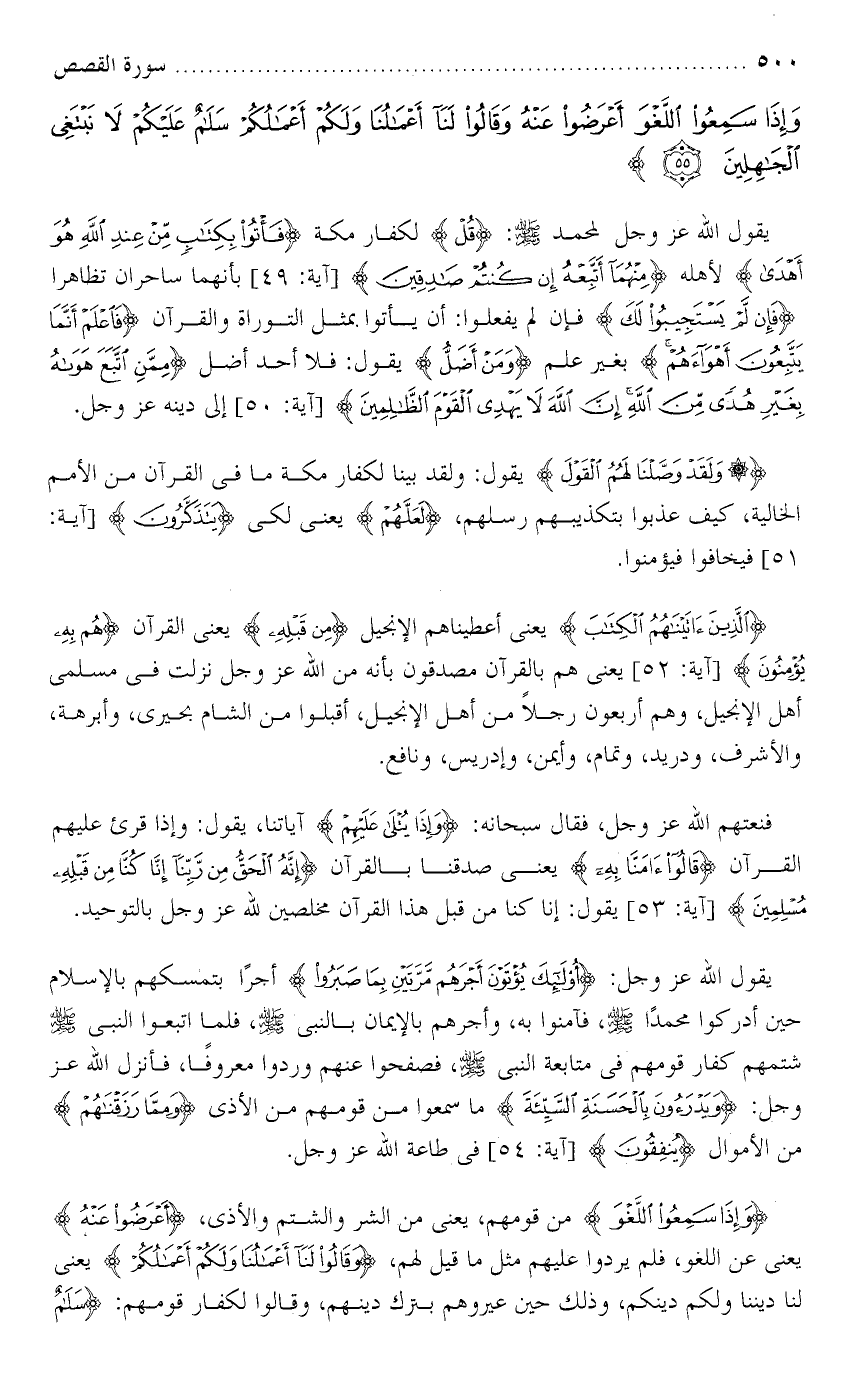 ٥٠٠ ........................................................................ سورة القصص
وَإِذَا سَمِعُواْ ٱللَّغْوَ أَعْرَضُواْ عَنْهُ وَقَالُواْ لَنَآ أَعْمَٰلُنَا وَلَكُمْ أَعْمَٰلُكُمْ سَلَٰمٌ عَلَيْكُمْ لَا نَبْتَغِى
ٱلْجَٰهِلِينَ ٥٥ ﴾
يقول الله عز وجل لمحمد ﷺ: ﴿قُلْ﴾ لكفار مكة ﴿فَأْتُواْ بِكِتَٰبٍ مِّنْ عِندِ ٱللَّهِ هُوَ
أَهْدَىٰ﴾ لأهله ﴿مِنْهُمَآ أَتَّبِعْهُ إِن كُنتُمْ صَٰدِقِينَ﴾ [آية: ٤٩] بأنهما ساحران تظاهرا
﴿فَإِن لَّمْ يَسْتَجِيبُواْ لَكَ﴾ فإن لم يفعلوا: أن يأتوا بمثل التوراة والقرآن ﴿فَٱعْلَمْ أَنَّمَا
يَتَّبِعُونَ أَهْوَآءَهُمْ﴾ بغير علم ﴿وَمَنْ أَضَلُّ﴾ يقول: فلا أحد أضل ﴿مِمَّنِ ٱتَّبَعَ هَوَىٰهُ
بِغَيْرِ هُدًى مِّنَ ٱللَّهِ إِنَّ ٱللَّهَ لَا يَهْدِى ٱلْقَوْمَ ٱلظَّٰلِمِينَ﴾ [آية: ٥٠] إلى دينه عز وجل.
﴿۞ وَلَقَدْ وَصَّلْنَا لَهُمُ ٱلْقَوْلَ﴾ يقول: ولقد بينا لكفار مكة ما فى القرآن من الأمم
الخالية، كيف عذبوا بتكذيبهم رسلهم، ﴿لَعَلَّهُمْ﴾ يعنى لكى ﴿يَتَذَكَّرُونَ﴾ [آية:
٥١] فيخافوا فيؤمنوا.
﴿ٱلَّذِينَ ءَاتَيْنَٰهُمُ ٱلْكِتَٰبَ﴾ يعنى أعطيناهم الإنجيل ﴿مِن قَبْلِهِۦ﴾ يعنى القرآن ﴿هُم بِهِۦ
يُؤْمِنُونَ﴾ [آية: ٥٢] يعنى هم بالقرآن مصدقون بأنه من الله عز وجل نزلت فى مسلمى
أهل الإنجيل، وهم أربعون رجلاً من أهل الإنجيل، أقبلوا من الشام بحيرى، وأبرهة،
والأشرف، ودريد، وتمام، وأيمن، وإدريس، ونافع.
فنعتهم الله عز وجل، فقال سبحانه: ﴿وَإِذَا يُتْلَىٰ عَلَيْهِمْ﴾ آياتنا، يقول: وإذا قرئ عليهم
القرآن ﴿قَالُوٓاْ ءَامَنَّا بِهِۦٓ﴾ يعنى صدقنا بالقرآن ﴿إِنَّهُ ٱلْحَقُّ مِن رَّبِّنَآ إِنَّا كُنَّا مِن قَبْلِهِۦ
مُسْلِمِينَ﴾ [آية: ٥٣] يقول: إنا كنا من قبل هذا القرآن مخلصين لله عز وجل بالتوحيد.
يقول الله عز وجل: ﴿أُوْلَٰٓئِكَ يُؤْتَوْنَ أَجْرَهُم مَّرَّتَيْنِ بِمَا صَبَرُواْ﴾ أجرًا بتمسكهم بالإسلام
حين أدركوا محمدًا ﷺ، فآمنوا به، وأجرهم بالإيمان بالنبى ﷺ، فلما اتبعوا النبى ﷺ
شتمهم كفار قومهم فى متابعة النبى ﷺ، فصفحوا عنهم وردوا معروفًا، فأنزل الله عز
وجل: ﴿وَيَدْرَءُونَ بِٱلْحَسَنَةِ ٱلسَّيِّئَةَ﴾ ما سمعوا من قومهم من الأذى ﴿وَمِمَّا رَزَقْنَٰهُمْ﴾
من الأموال ﴿يُنفِقُونَ﴾ [آية: ٥٤] فى طاعة الله عز وجل.
﴿وَإِذَا سَمِعُواْ ٱللَّغْوَ﴾ من قومهم، يعنى من الشر والشتم والأذى، ﴿أَعْرَضُواْ عَنْهُ﴾
يعنى عن اللغو، فلم يردوا عليهم مثل ما قيل لهم، ﴿وَقَالُواْ لَنَآ أَعْمَٰلُنَا وَلَكُمْ أَعْمَٰلُكُمْ﴾ يعنى
لنا ديننا ولكم دينكم، وذلك حين عيروهم بترك دينهم، وقالوا لكفار قومهم: ﴿سَلَٰمٌ